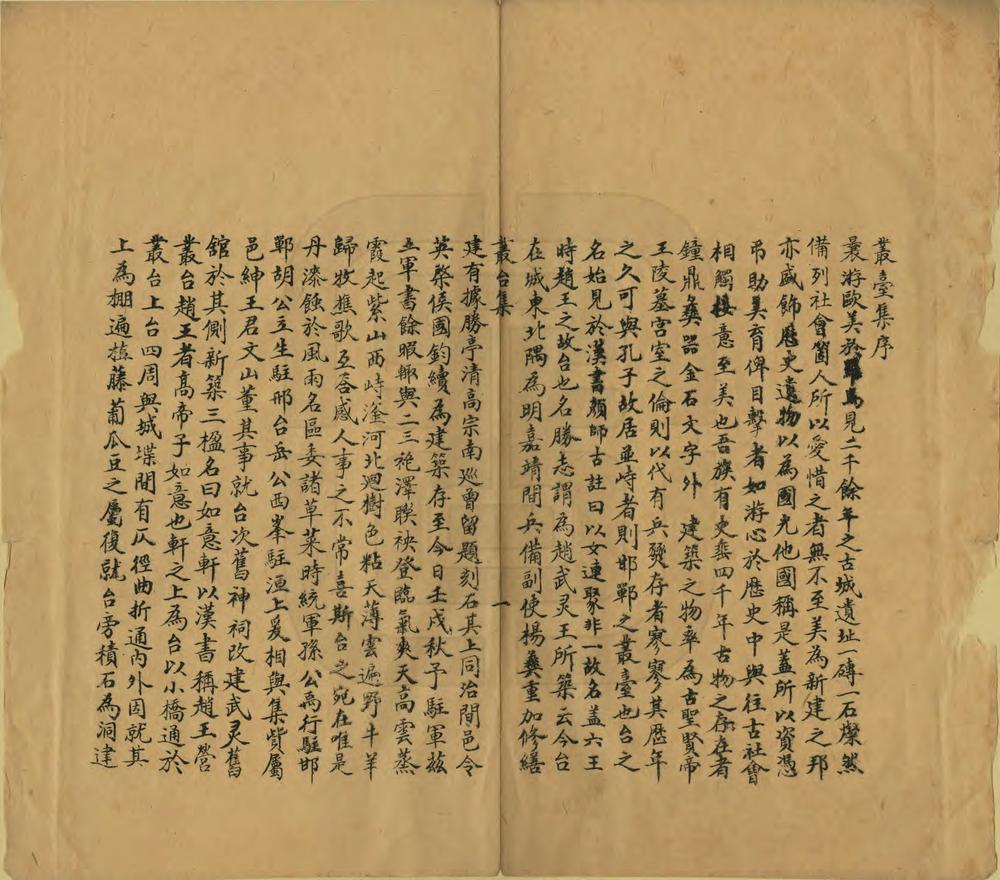 叢臺集序
曩游歐美於羅馬見二千餘年之古城遺址一磚一石燦然
備列社會箇人所以愛惜之者無不至美為新建之邦
亦盛飾歷史遺物以為國光他國稱是蓋所以資憑
弔助美育俾目擊者如游心於歷史中與往古社會
相觸接意至美也吾族有史垂四千年古物之存在者
鐘鼎彝器金石文字外 建築之物率為古聖賢帝
王陵墓宮室之倫則以代有兵燹存者寥寥其歷年
之久可與孔子故居並峙者則邯鄲之叢臺也台之
名始見於漢書顏師古註曰以女連聚非一故名蓋六王
時趙王之故台也名勝志謂為趙武灵王所築云今台
在城東北隅為明嘉靖間兵備副使楊彝重加修繕
叢台集 一
建有據勝亭清高宗南巡曾留題刻石其上同治間邑令
英棨侯國鈞續為建築存至今日壬戌秋予駐軍茲
土軍書餘暇輒與二三袍澤聯袂登臨氣爽天高雲蒸
霞起紫山西峙滏河北迴樹色粘天薄雲遍野牛羊
歸牧樵歌互答感人事之不常喜斯台之宛在唯是
丹漆蝕於風雨名區委諸草菜時統軍孫公禹行駐邯
鄲胡公立生駐邢台岳公西峯駐洹上爰相與集貲屬
邑紳王君文山董其事就台次舊神祠改建武灵舊
館於其側新築三楹名曰如意軒以漢書稱趙王營
叢台趙王者高帝子如意也軒之上為台以小橋通於
叢台上台四周與城堞間有仄徑曲折通內外因就其
上為棚遍植藤葡瓜豆之屬復就台旁積石為洞建